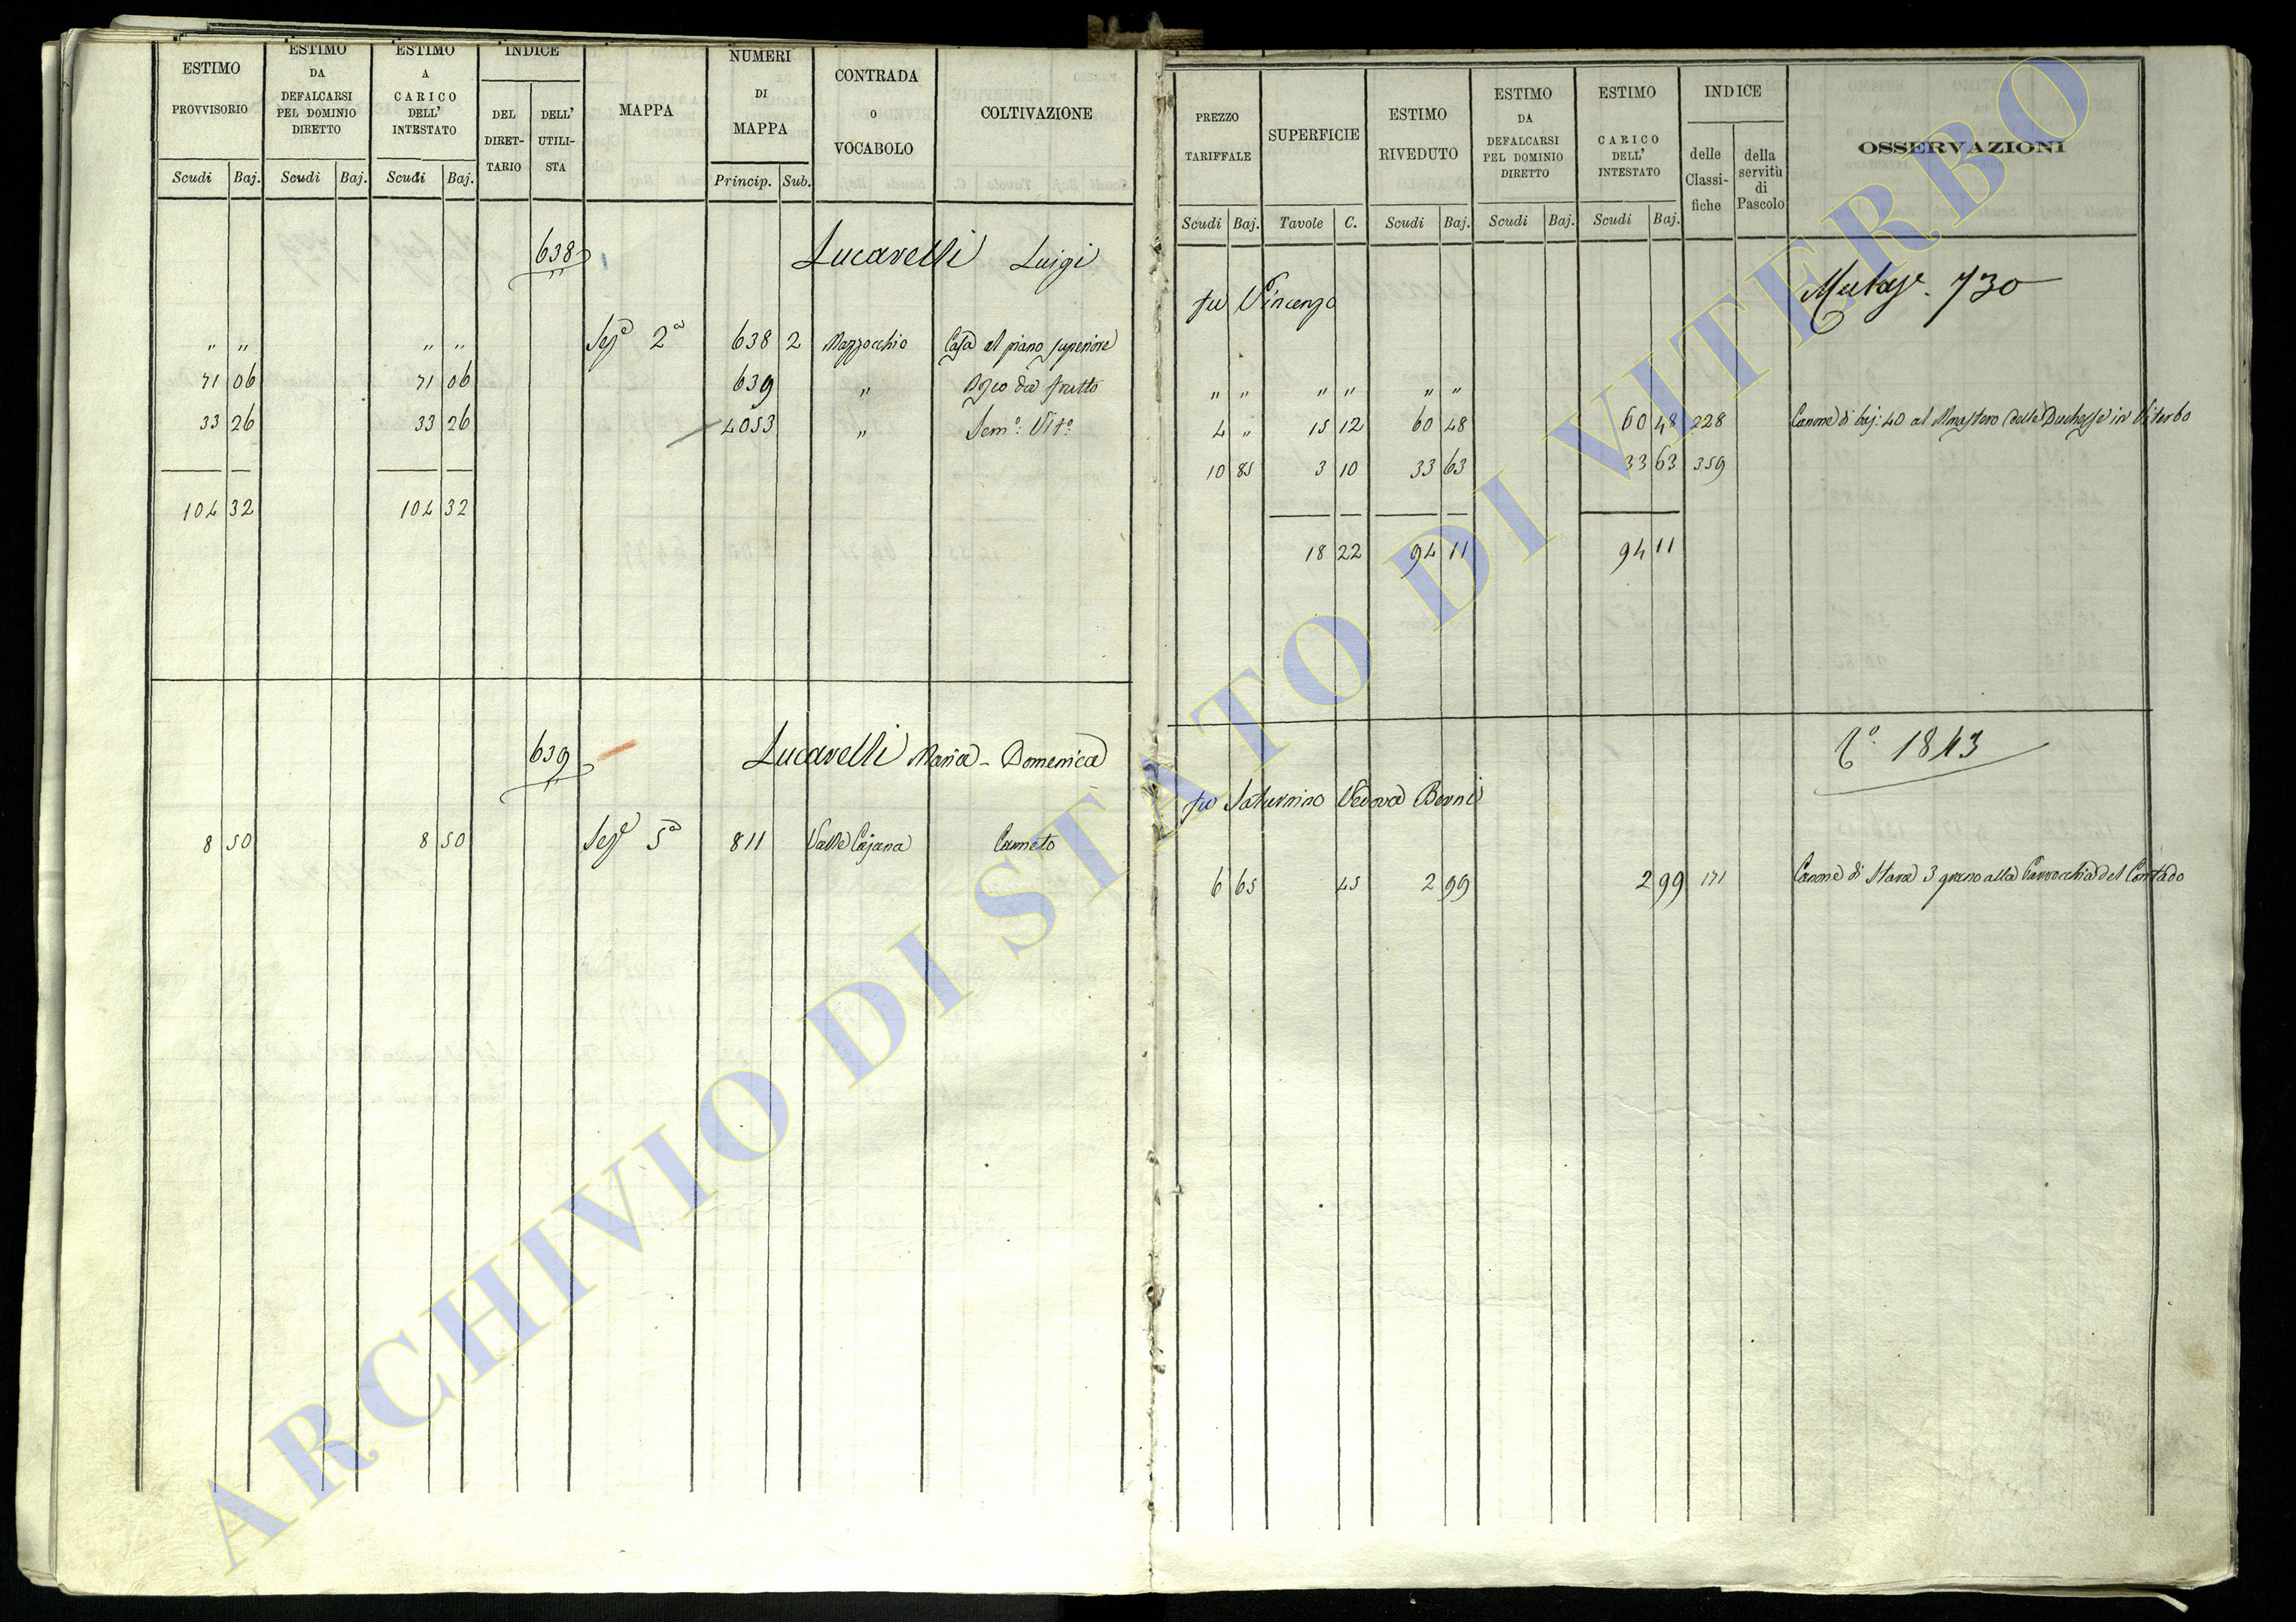 ESTIMO PROVVISORIO
Scudi Baj.
ESTIMO DA DEFALCARSI PEL DOMINIO DIRETTO
Scudi Baj.
ESTIMO A CARICO DELL' INTESTATO
Scudi Baj.
INDICE
DEL DIRET-
TARIO
DELL' UTILI-
STA
MAPPA
NUMERI DI MAPPA
Princip. Sub.
CONTRADA O VOCABOLO
COLTIVAZIONE
638 Lucarelli Luigi
" " " " Sezᵉ 2ᵃ 638 2 Mazzocchio Casa al piano superiore
71 06 71 06 639 "
33 26 33 26 4053 " Semᵒ: Vitᵒ:
104 32 104 32
639 Lucarelli Maria-Domenica
8 50 8 50 Sezᵉ 5ᵃ 811 Valle Cajana Canneto
PREZZO TARIFFALE
Scudi Baj.
SUPERFICIE
Tavole C.
ESTIMO RIVEDUTO
Scudi Baj.
ESTIMO DA DEFALCARSI PEL DOMINIO DIRETTO
Scudi Baj.
ESTIMO CARICO DELL' INTESTATO
Scudi Baj.
INDICE
delle Classi-
fiche
della servitù di Pascolo
OSSERVAZIONI
fu Vincenzo 730
" " " " " "
4 " 15 12 60 48 60 48 228 Canone di baj: 40 al Monastero delle Duchesse in Viterbo
10 85 3 10 33 63 33 63 359
18 22 94 11 94 11
1843
fu Saturnino Vedova Berni
6 65 45 2 99 2 99 171 Canone di Stara 3 grano alla Parrocchia del Contado
ARCHIVIO DI STATO DI VITERBO